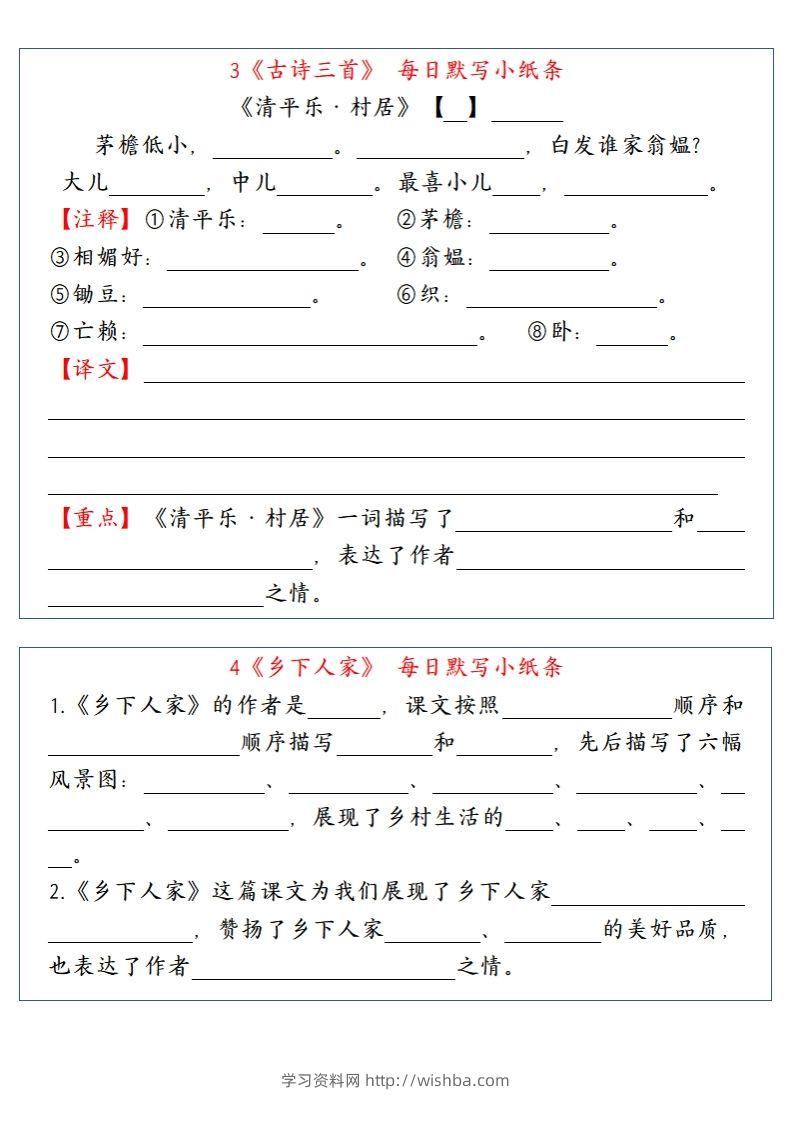 3《古诗三首》 每日默写小纸条
《清平乐·村居》【__】______
茅檐低小，__________。______________，白发谁家翁媪?
大儿________，中儿________。最喜小儿____，____________。
【注释】①清平乐：______。 ②茅檐：__________。
③相媚好：________________。 ④翁媪：__________。
⑤锄豆：______________。 ⑥织：________________。
⑦亡赖：____________________________。 ⑧卧：______。
【译文】__________________________________________________
__________________________________________________________
__________________________________________________________
________________________________________________________
【重点】《清平乐·村居》一词描写了__________________和____
______________________，表达了作者________________________
__________________之情。
4《乡下人家》 每日默写小纸条
1.《乡下人家》的作者是______，课文按照______________顺序和
________________顺序描写________和________，先后描写了六幅
风景图：__________、__________、__________、__________、__
________、__________，展现了乡村生活的____、____、____、__
__。
2.《乡下人家》这篇课文为我们展现了乡下人家________________
____________，赞扬了乡下人家________、________的美好品质，
也表达了作者______________________之情。
学习资料网 http://wishba.com